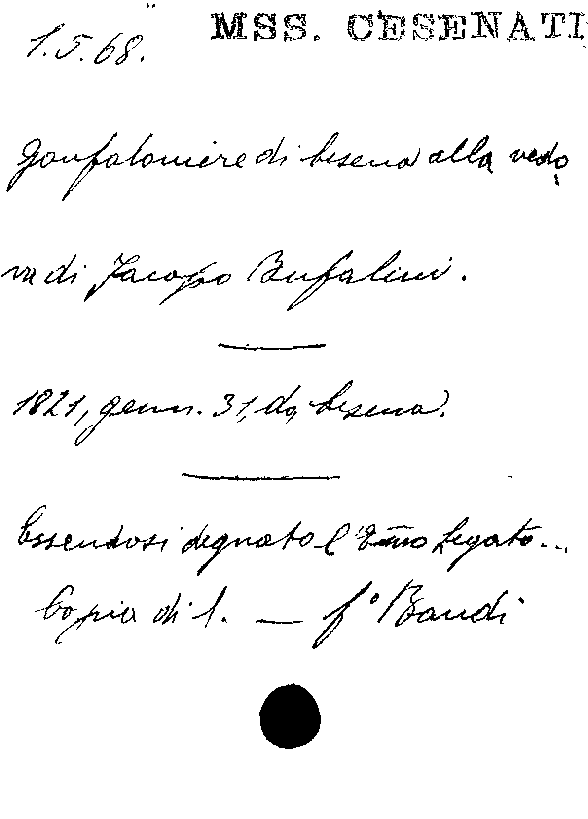 1.5.68. MSS. CESENATI
Gonfaloniere di Cesena alla vedo
va di Jacopo Bufalini.
1821, genn. 31, da Cesena.
Essendosi degnato l'Emo Legato...
Copia di l. — fº Bandi